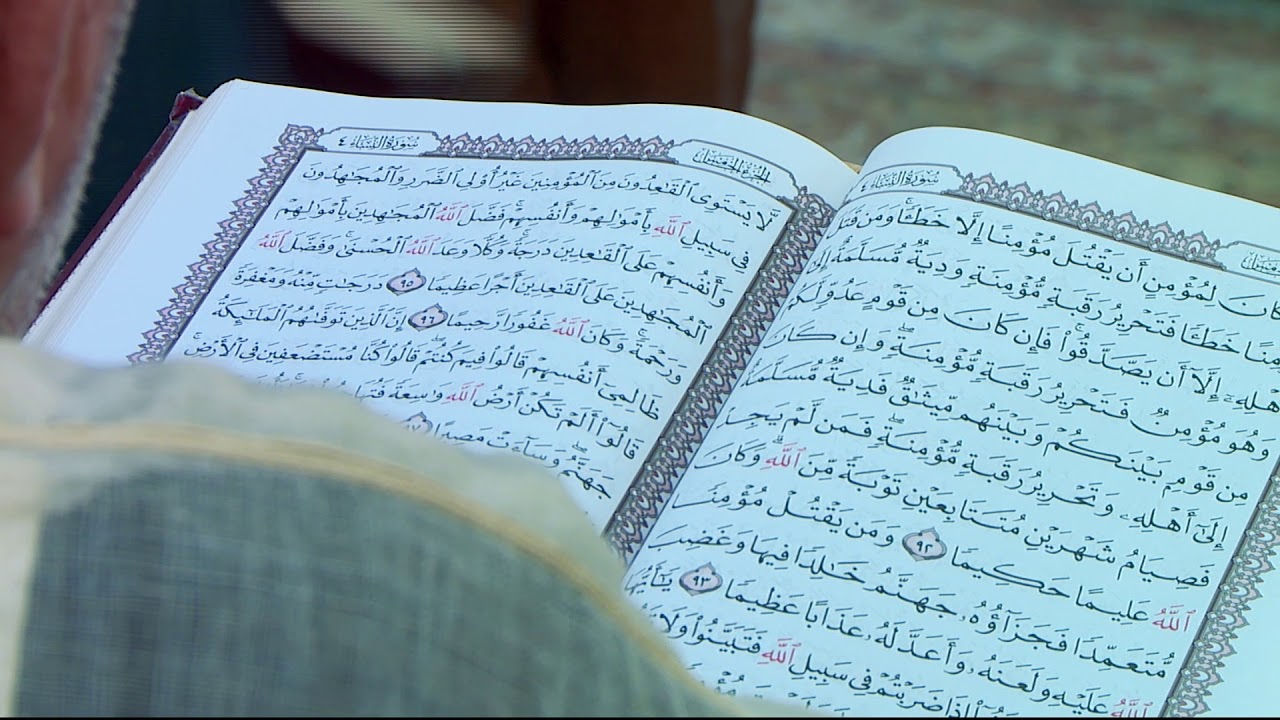 سُورَةُ النِّسَاءِ ٤
كَانَ لِمُؤْمِنٍ أَن يَقْتُلَ مُؤْمِنًا إِلَّا خَطَـًٔا ۚ وَمَن قَتَلَ
خَطَـًٔا فَتَحْرِيرُ رَقَبَةٍ مُّؤْمِنَةٍ وَدِيَةٌ مُّسَلَّمَةٌ إِلَىٰٓ
أَهْلِهِۦٓ إِلَّآ أَن يَصَّدَّقُوا۟ ۚ فَإِن كَانَ مِن قَوْمٍ عَدُوٍّ لَّكُمْ
وَهُوَ مُؤْمِنٌ فَتَحْرِيرُ رَقَبَةٍ مُّؤْمِنَةٍ ۖ وَإِن كَانَ
مِن قَوْمٍۭ بَيْنَكُمْ وَبَيْنَهُم مِّيثَٰقٌ فَدِيَةٌ مُّسَلَّمَةٌ
إِلَىٰٓ أَهْلِهِۦ وَتَحْرِيرُ رَقَبَةٍ مُّؤْمِنَةٍ ۖ فَمَن لَّمْ يَجِدْ
فَصِيَامُ شَهْرَيْنِ مُتَتَابِعَيْنِ تَوْبَةً مِّنَ ٱللَّهِ ۗ وَكَانَ
ٱللَّهُ عَلِيمًا حَكِيمًا ٩٢ وَمَن يَقْتُلْ مُؤْمِنًا
مُّتَعَمِّدًا فَجَزَآؤُهُۥ جَهَنَّمُ خَٰلِدًا فِيهَا وَغَضِبَ
ٱللَّهُ عَلَيْهِ وَلَعَنَهُۥ وَأَعَدَّ لَهُۥ عَذَابًا عَظِيمًا ٩٣ يَٰٓأَيُّهَا
إِذَا ضَرَبْتُمْ فِى سَبِيلِ ٱللَّهِ فَتَبَيَّنُوا۟ وَلَا
الجزء الخامس
سُورَةُ النِّسَاءِ ٤
لَّا يَسْتَوِى ٱلْقَٰعِدُونَ مِنَ ٱلْمُؤْمِنِينَ غَيْرُ أُو۟لِى ٱلضَّرَرِ وَٱلْمُجَٰهِدُونَ
فِى سَبِيلِ ٱللَّهِ بِأَمْوَٰلِهِمْ وَأَنفُسِهِمْ ۚ فَضَّلَ ٱللَّهُ ٱلْمُجَٰهِدِينَ بِأَمْوَٰلِهِمْ
وَأَنفُسِهِمْ عَلَى ٱلْقَٰعِدِينَ دَرَجَةً ۚ وَكُلًّا وَعَدَ ٱللَّهُ ٱلْحُسْنَىٰ ۚ وَفَضَّلَ ٱللَّهُ
ٱلْمُجَٰهِدِينَ عَلَى ٱلْقَٰعِدِينَ أَجْرًا عَظِيمًا ٩٥ دَرَجَٰتٍ مِّنْهُ وَمَغْفِرَةً
وَرَحْمَةً ۚ وَكَانَ ٱللَّهُ غَفُورًا رَّحِيمًا ٩٦ إِنَّ ٱلَّذِينَ تَوَفَّىٰهُمُ ٱلْمَلَٰٓئِكَةُ
ظَالِمِىٓ أَنفُسِهِمْ قَالُوا۟ فِيمَ كُنتُمْ ۖ قَالُوا۟ كُنَّا مُسْتَضْعَفِينَ فِى ٱلْأَرْضِ ۚ
قَالُوٓا۟ أَلَمْ تَكُنْ أَرْضُ ٱللَّهِ وَٰسِعَةً
جَهَنَّمُ ۖ وَسَآءَتْ مَصِيرًا